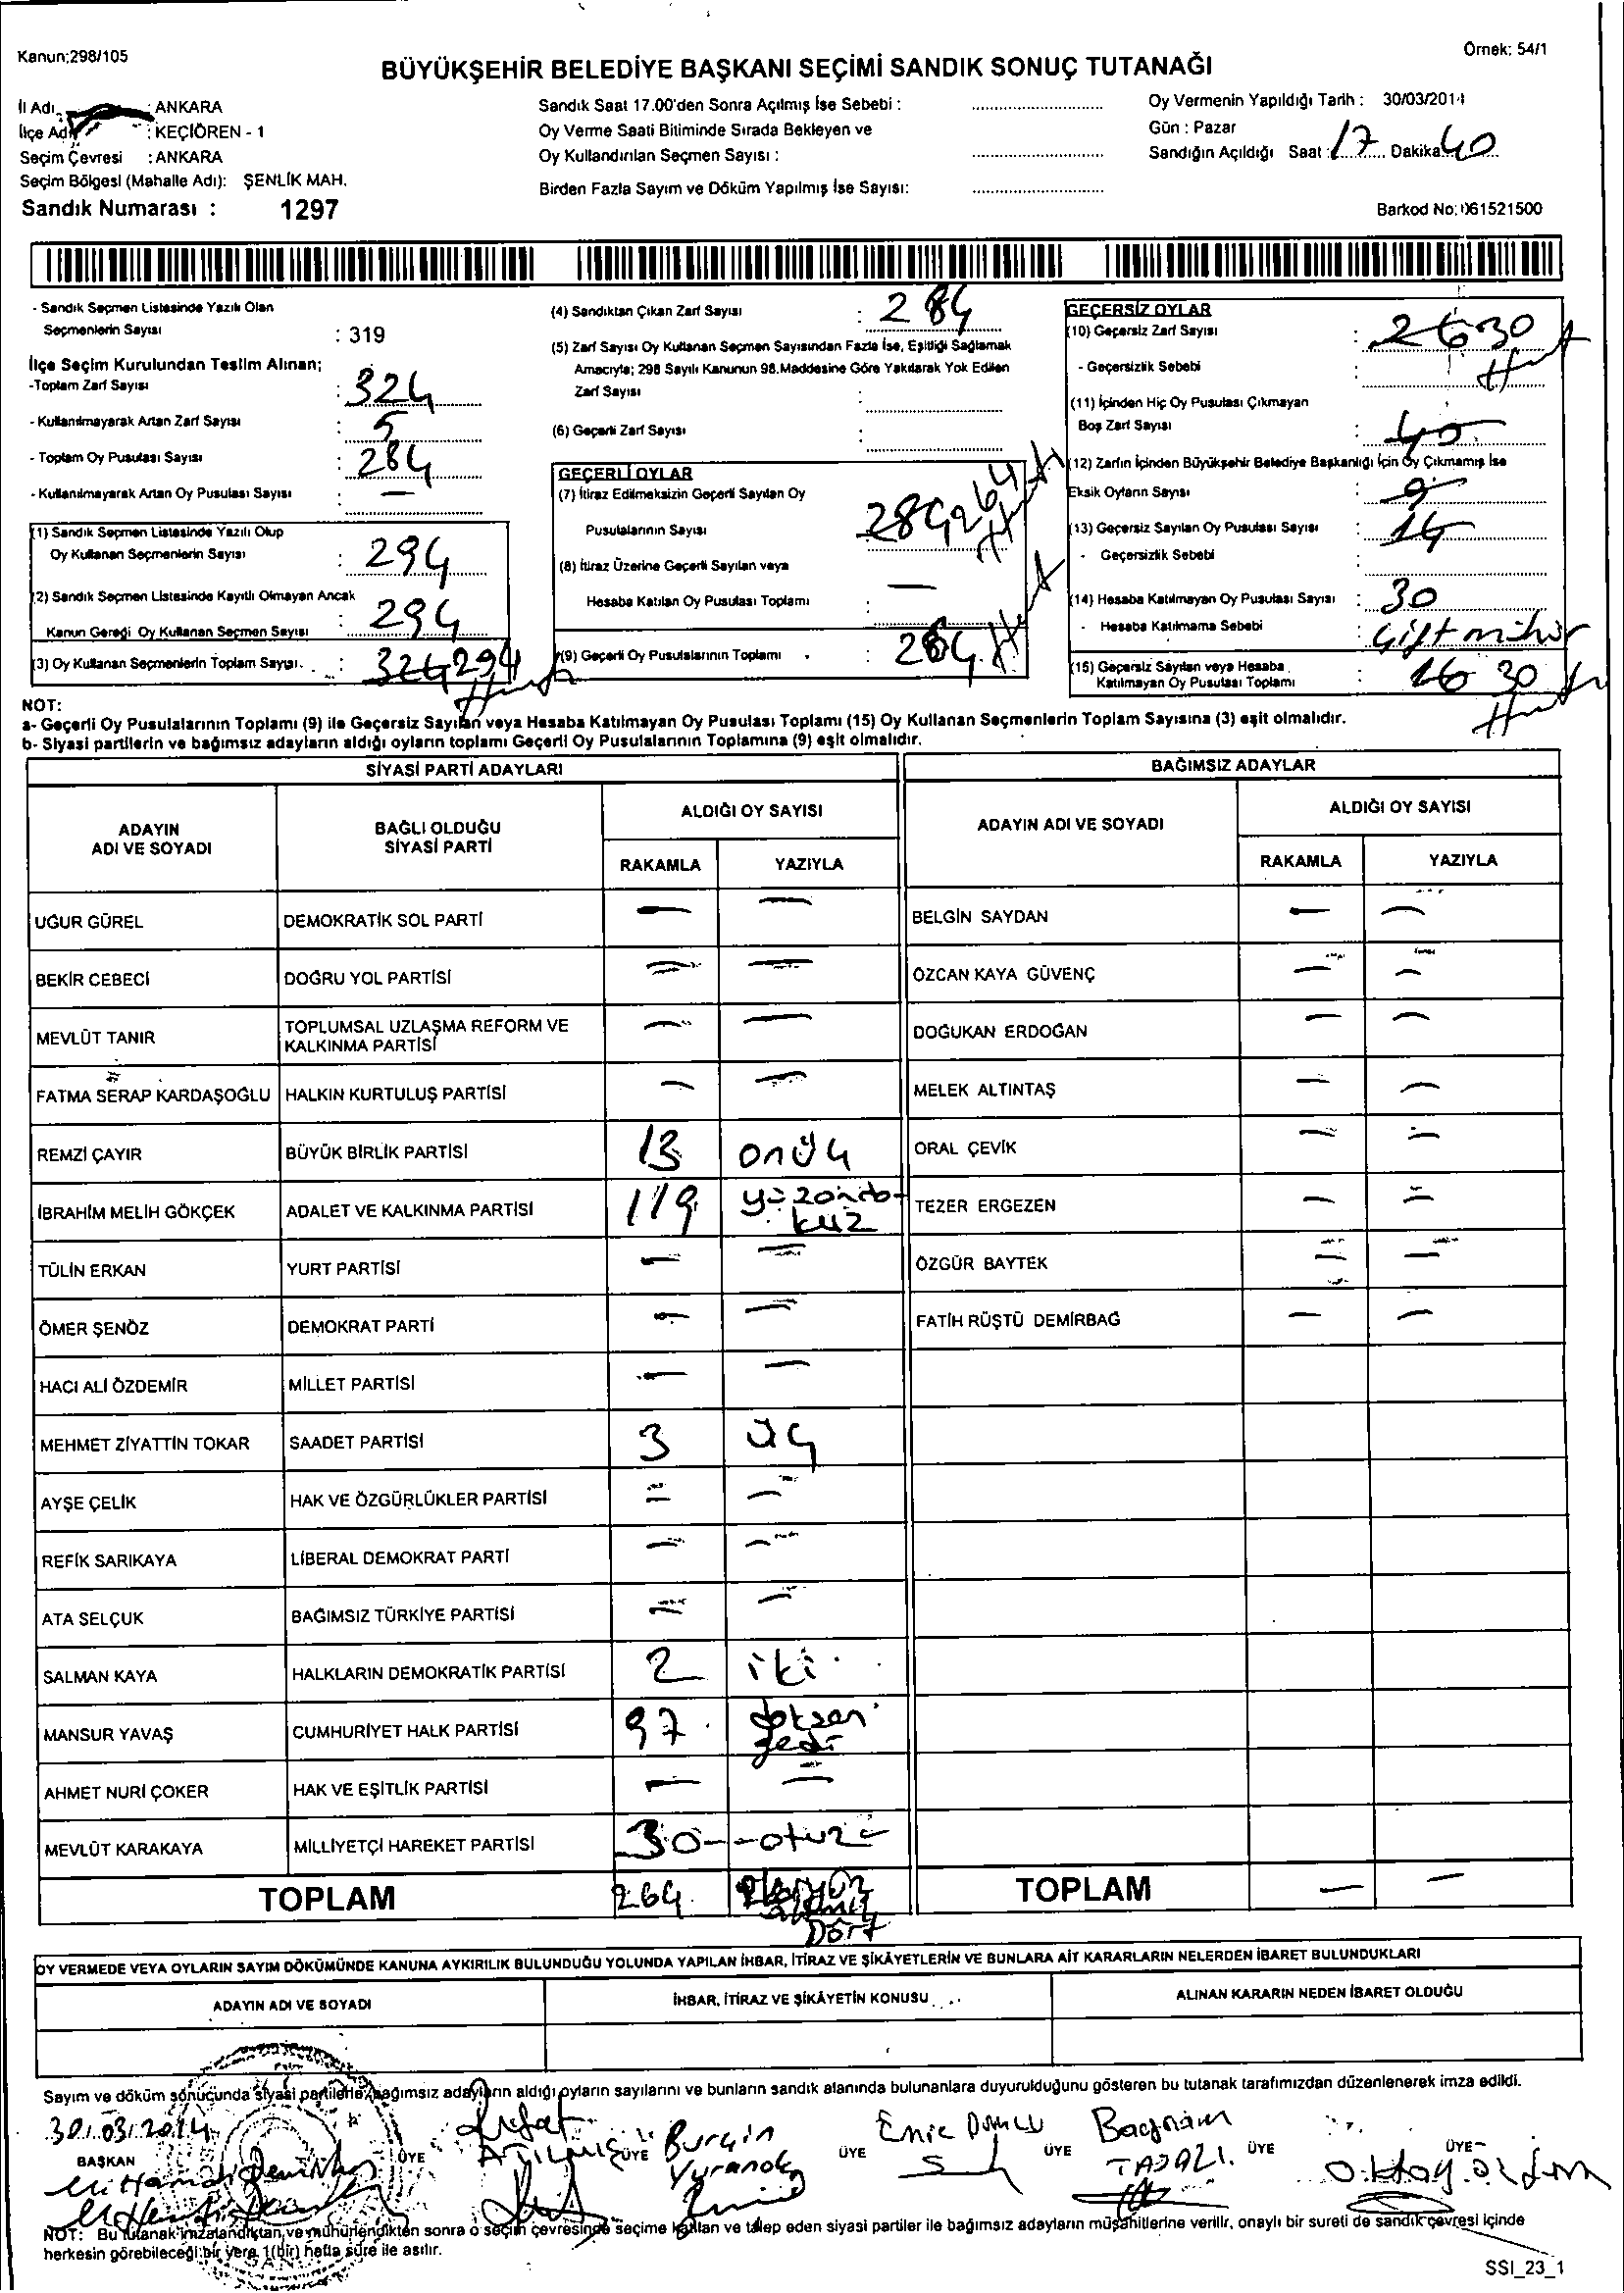 Kanun:298/105
Örnek: 54/1
BÜYÜKŞEHİR BELEDİYE BAŞKANI SEÇİMİ SANDIK SONUÇ TUTANAĞI
İl Adı : ANKARA
İlçe Adı : KEÇİÖREN - 1
Seçim Çevresi : ANKARA
Seçim Bölgesi (Mahalle Adı): ŞENLİK MAH.
Sandık Numarası : 1297
Sandık Saat 17.00'den Sonra Açılmış İse Sebebi :
Oy Verme Saati Bitiminde Sırada Bekleyen ve
Oy Kullandırılan Seçmen Sayısı :
Birden Fazla Sayım ve Döküm Yapılmış İse Sayısı:
Oy Vermenin Yapıldığı Tarih : 30/03/2014
Gün : Pazar
Sandığın Açıldığı Saat : 17 Dakika 40
Barkod No: 061521500
- Sandık Seçmen Listesinde Yazılı Olan
Seçmenlerin Sayısı : 319
İlçe Seçim Kurulundan Teslim Alınan;
-Toplam Zarf Sayısı : 324
- Kullanılmayarak Artan Zarf Sayısı : 5
- Toplam Oy Pusulası Sayısı : 284
- Kullanılmayarak Artan Oy Pusulası Sayısı : —
(1) Sandık Seçmen Listesinde Yazılı Olup
Oy Kullanan Seçmenlerin Sayısı : 294
(2) Sandık Seçmen Listesinde Kayıtlı Olmayan Ancak
Kanun Gereği Oy Kullanan Seçmen Sayısı : 294
(3) Oy Kullanan Seçmenlerin Toplam Sayısı : 324 294
(4) Sandıktan Çıkan Zarf Sayısı : 284
(5) Zarf Sayısı Oy Kullanan Seçmen Sayısından Fazla İse, Eşitliği Sağlamak
Amacıyla; 298 Sayılı Kanunun 98.Maddesine Göre Yakılarak Yok Edilen
Zarf Sayısı :
(6) Geçerli Zarf Sayısı :
GEÇERLİ OYLAR
(7) İtiraz Edilmeksizin Geçerli Sayılan Oy
Pusulalarının Sayısı 284 264
(8) İtiraz Üzerine Geçerli Sayılan veya
Hesaba Katılan Oy Pusulası Toplamı : —
(9) Geçerli Oy Pusulalarının Toplamı : 264
GEÇERSİZ OYLAR
(10) Geçersiz Zarf Sayısı : 26 30
- Geçersizlik Sebebi
(11) İçinden Hiç Oy Pusulası Çıkmayan
Boş Zarf Sayısı : 40
(12) Zarfın İçinden Büyükşehir Belediye Başkanlığı İçin Oy Çıkmamış İse
Eksik Oyların Sayısı :
(13) Geçersiz Sayılan Oy Pusulası Sayısı : 14
- Geçersizlik Sebebi
(14) Hesaba Katılmayan Oy Pusulası Sayısı : 30
- Hesaba Katılmama Sebebi : Çift mühür
(15) Geçersiz Sayılan veya Hesaba
Katılmayan Oy Pusulası Toplamı : 16 30
NOT:
a- Geçerli Oy Pusulalarının Toplamı (9) ile Geçersiz Sayılan veya Hesaba Katılmayan Oy Pusulası Toplamı (15) Oy Kullanan Seçmenlerin Toplam Sayısına (3) eşit olmalıdır.
b- Siyasi partilerin ve bağımsız adayların aldığı oyların toplamı Geçerli Oy Pusulalarının Toplamına (9) eşit olmalıdır.
SİYASİ PARTİ ADAYLARI
BAĞIMSIZ ADAYLAR
ADAYIN ADI VE SOYADI
BAĞLI OLDUĞU SİYASİ PARTİ
ALDIĞI OY SAYISI
RAKAMLA YAZIYLA
ADAYIN ADI VE SOYADI
ALDIĞI OY SAYISI
RAKAMLA YAZIYLA
UĞUR GÜREL DEMOKRATİK SOL PARTİ — — BELGİN SAYDAN — —
BEKİR CEBECİ DOĞRU YOL PARTİSİ — — ÖZCAN KAYA GÜVENÇ — —
MEVLÜT TANIR TOPLUMSAL UZLAŞMA REFORM VE KALKINMA PARTİSİ — — DOĞUKAN ERDOĞAN — —
FATMA SERAP KARDAŞOĞLU HALKIN KURTULUŞ PARTİSİ — — MELEK ALTINTAŞ — —
REMZİ ÇAYIR BÜYÜK BİRLİK PARTİSİ 13 onüç ORAL ÇEVİK — —
İBRAHİM MELİH GÖKÇEK ADALET VE KALKINMA PARTİSİ 119 yüzondokuz TEZER ERGEZEN — —
TÜLİN ERKAN YURT PARTİSİ — — ÖZGÜR BAYTEK — —
ÖMER ŞENÖZ DEMOKRAT PARTİ — — FATİH RÜŞTÜ DEMİRBAĞ — —
HACI ALİ ÖZDEMİR MİLLET PARTİSİ — —
MEHMET ZİYATTİN TOKAR SAADET PARTİSİ 3 üç
AYŞE ÇELİK HAK VE ÖZGÜRLÜKLER PARTİSİ — —
REFİK SARIKAYA LİBERAL DEMOKRAT PARTİ — —
ATA SELÇUK BAĞIMSIZ TÜRKİYE PARTİSİ — —
SALMAN KAYA HALKLARIN DEMOKRATİK PARTİSİ 2 iki
MANSUR YAVAŞ CUMHURİYET HALK PARTİSİ 97 doksan yedi
AHMET NURİ ÇOKER HAK VE EŞİTLİK PARTİSİ — —
MEVLÜT KARAKAYA MİLLİYETÇİ HAREKET PARTİSİ 30 otuz
TOPLAM 264 Dört TOPLAM — —
OY VERMEDE VEYA OYLARIN SAYIM DÖKÜMÜNDE KANUNA AYKIRILIK BULUNDUĞU YOLUNDA YAPILAN İHBAR, İTİRAZ VE ŞİKÂYETLERİN VE BUNLARA AİT KARARLARIN NELERDEN İBARET BULUNDUKLARI
ADAYIN ADI VE SOYADI İHBAR, İTİRAZ VE ŞİKÂYETİN KONUSU ALINAN KARARIN NEDEN İBARET OLDUĞU
Sayım ve döküm sonucunda siyasi partilerle bağımsız adayların aldığı oyların sayılarını ve bunların sandık alanında bulunanlara duyurulduğunu gösteren bu tutanak tarafımızdan düzenlenerek imza edildi.
30/03/2014
BAŞKAN ÜYE ÜYE ÜYE ÜYE ÜYE ÜYE
Burçin
NOT: Bu tutanak imzalandıktan ve mühürlendikten sonra o seçim çevresinde seçime katılan ve talep eden siyasi partiler ile bağımsız adayların müşahitlerine verilir, onaylı bir sureti de sandık çevresi içinde
herkesin görebileceği bir yere 1(bir) hafta süre ile asılır.
SSI_23_1